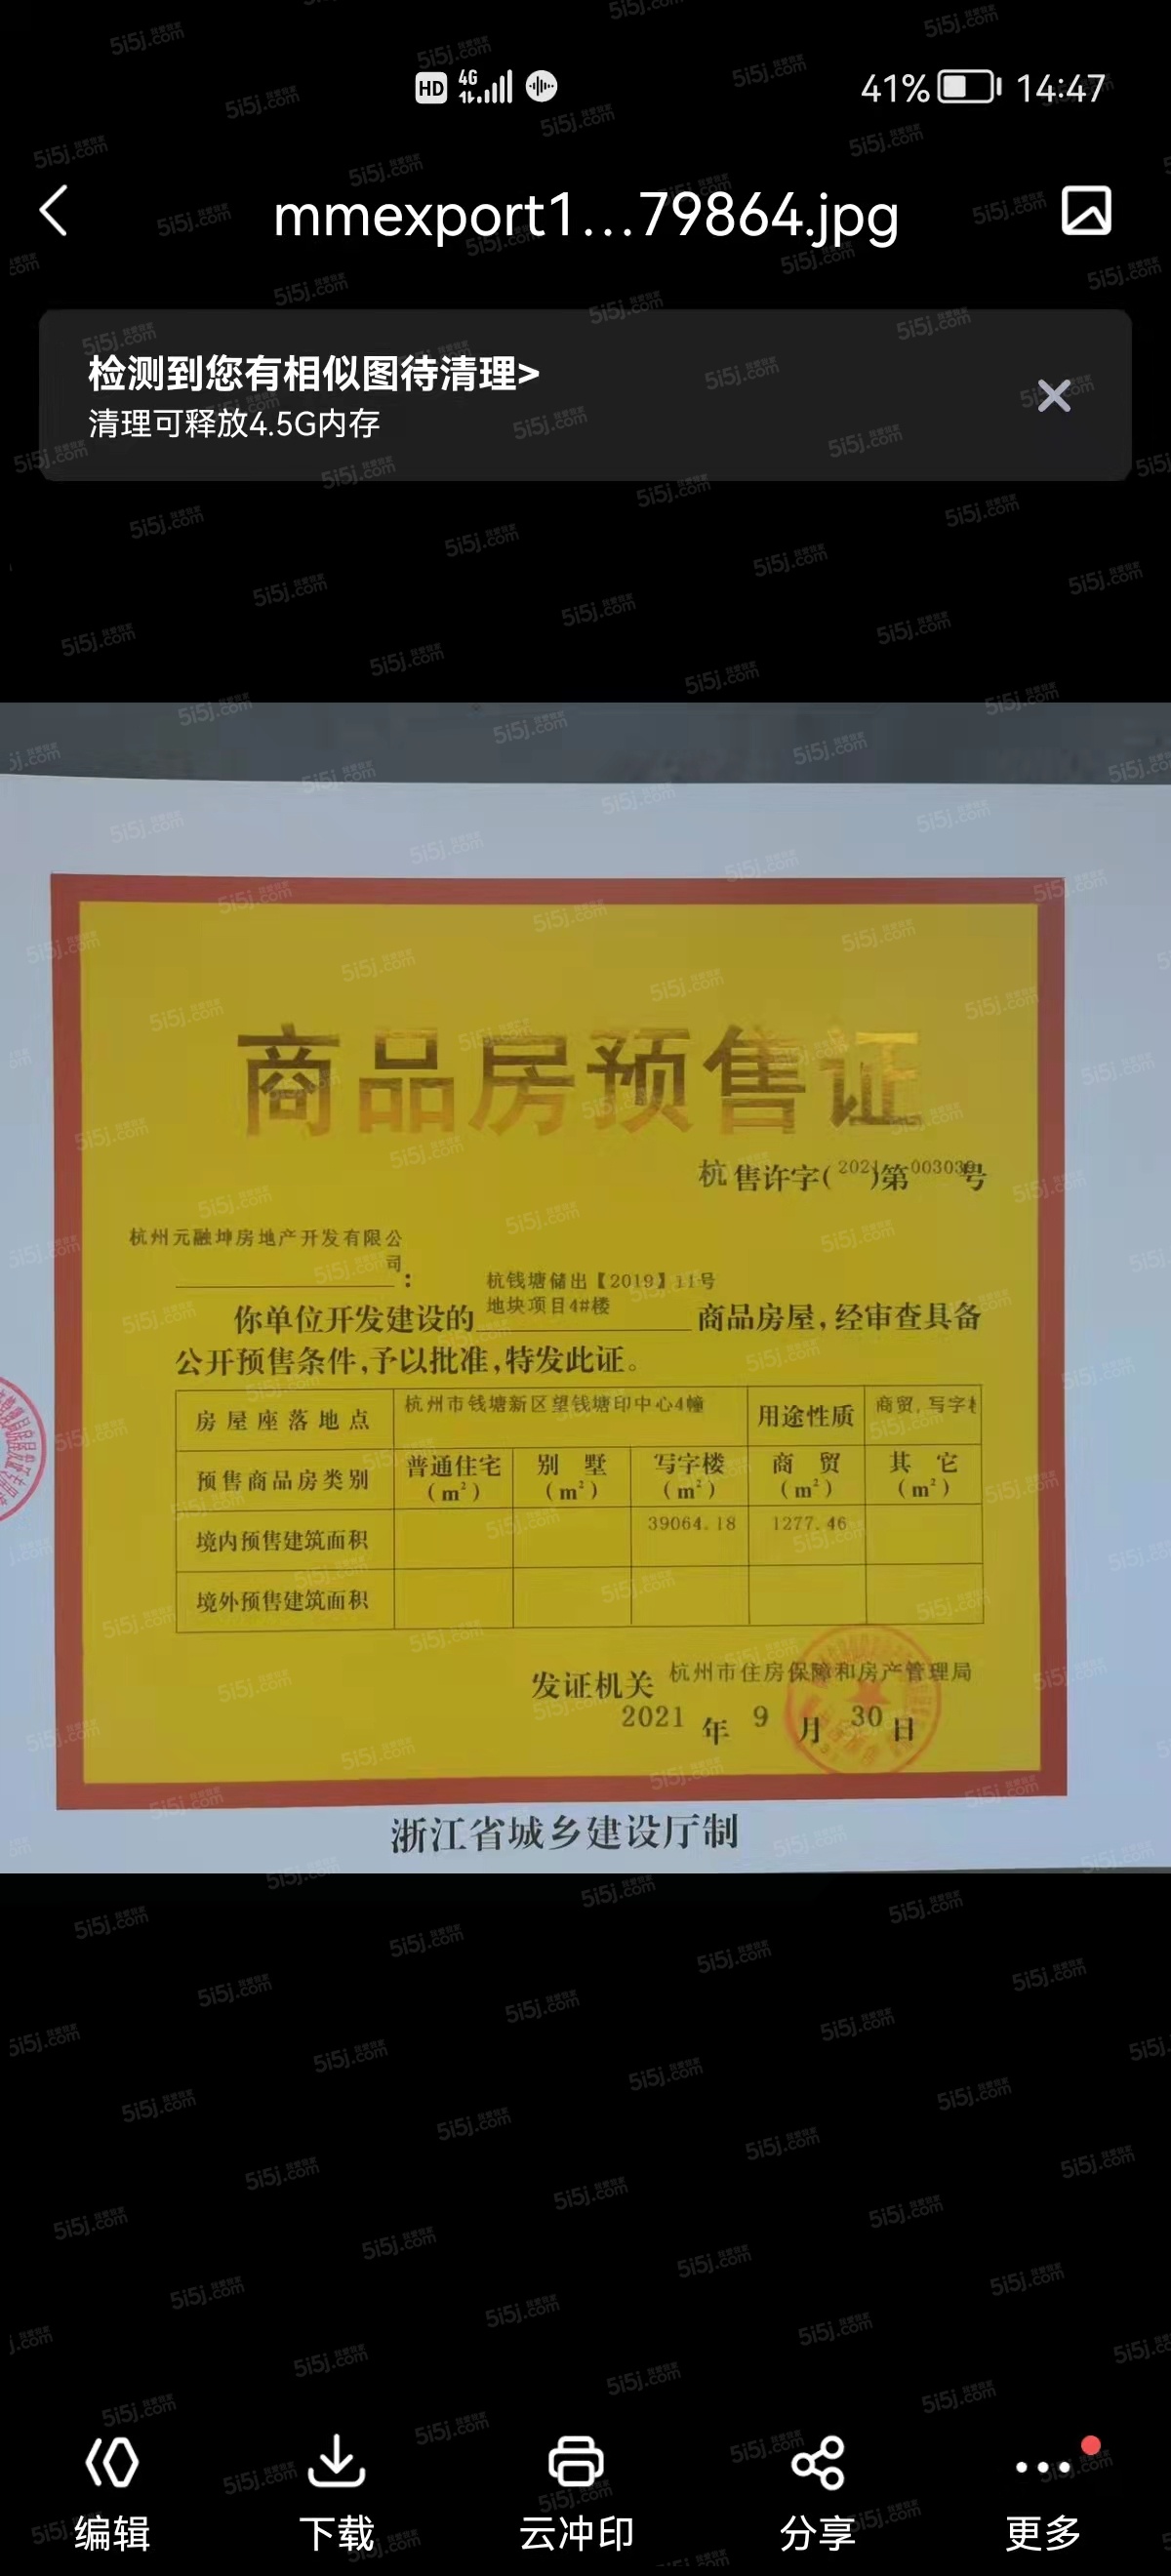 HD 4G 41% 14:47
mmexport1...79864.jpg
检测到您有相似图待清理>
清理可释放4.5G内存
商品房预售证
杭售许字(2021)第号
杭州元融坤房地产开发有限公
司:
杭钱塘储出【2019】11号
地块项目4#楼
你单位开发建设的 商品房屋,经审查具备
公开预售条件,予以批准,特发此证。
房屋座落地点 杭州市钱塘新区望钱塘印中心4幢 用途性质 商贸,写字
预售商品房类别 普通住宅(m²) 别墅(m²) 写字楼(m²) 商贸(m²) 其它(m²)
境内预售建筑面积 39064.18 1277.46
境外预售建筑面积
发证机关 杭州市住房保障和房产管理局
2021年9月30日
浙江省城乡建设厅制
编辑 下载 云冲印 分享 更多
我爱我家
5i5j.com